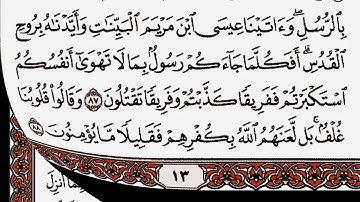 بِالرُّسُلِ ۖ وَءَاتَيْنَا عِيسَى ابْنَ مَرْيَمَ الْبَيِّنَٰتِ وَأَيَّدْنَٰهُ بِرُوحِ
الْقُدُسِ ۗ أَفَكُلَّمَا جَاءَكُمْ رَسُولٌۢ بِمَا لَا تَهْوَىٰٓ أَنفُسُكُمُ
اسْتَكْبَرْتُمْ فَفَرِيقًا كَذَّبْتُمْ وَفَرِيقًا تَقْتُلُونَ ٨٧ وَقَالُوا۟ قُلُوبُنَا
غُلْفٌۢ ۚ بَل لَّعَنَهُمُ اللَّهُ بِكُفْرِهِمْ فَقَلِيلًا مَّا يُؤْمِنُونَ ٨٨
١٣